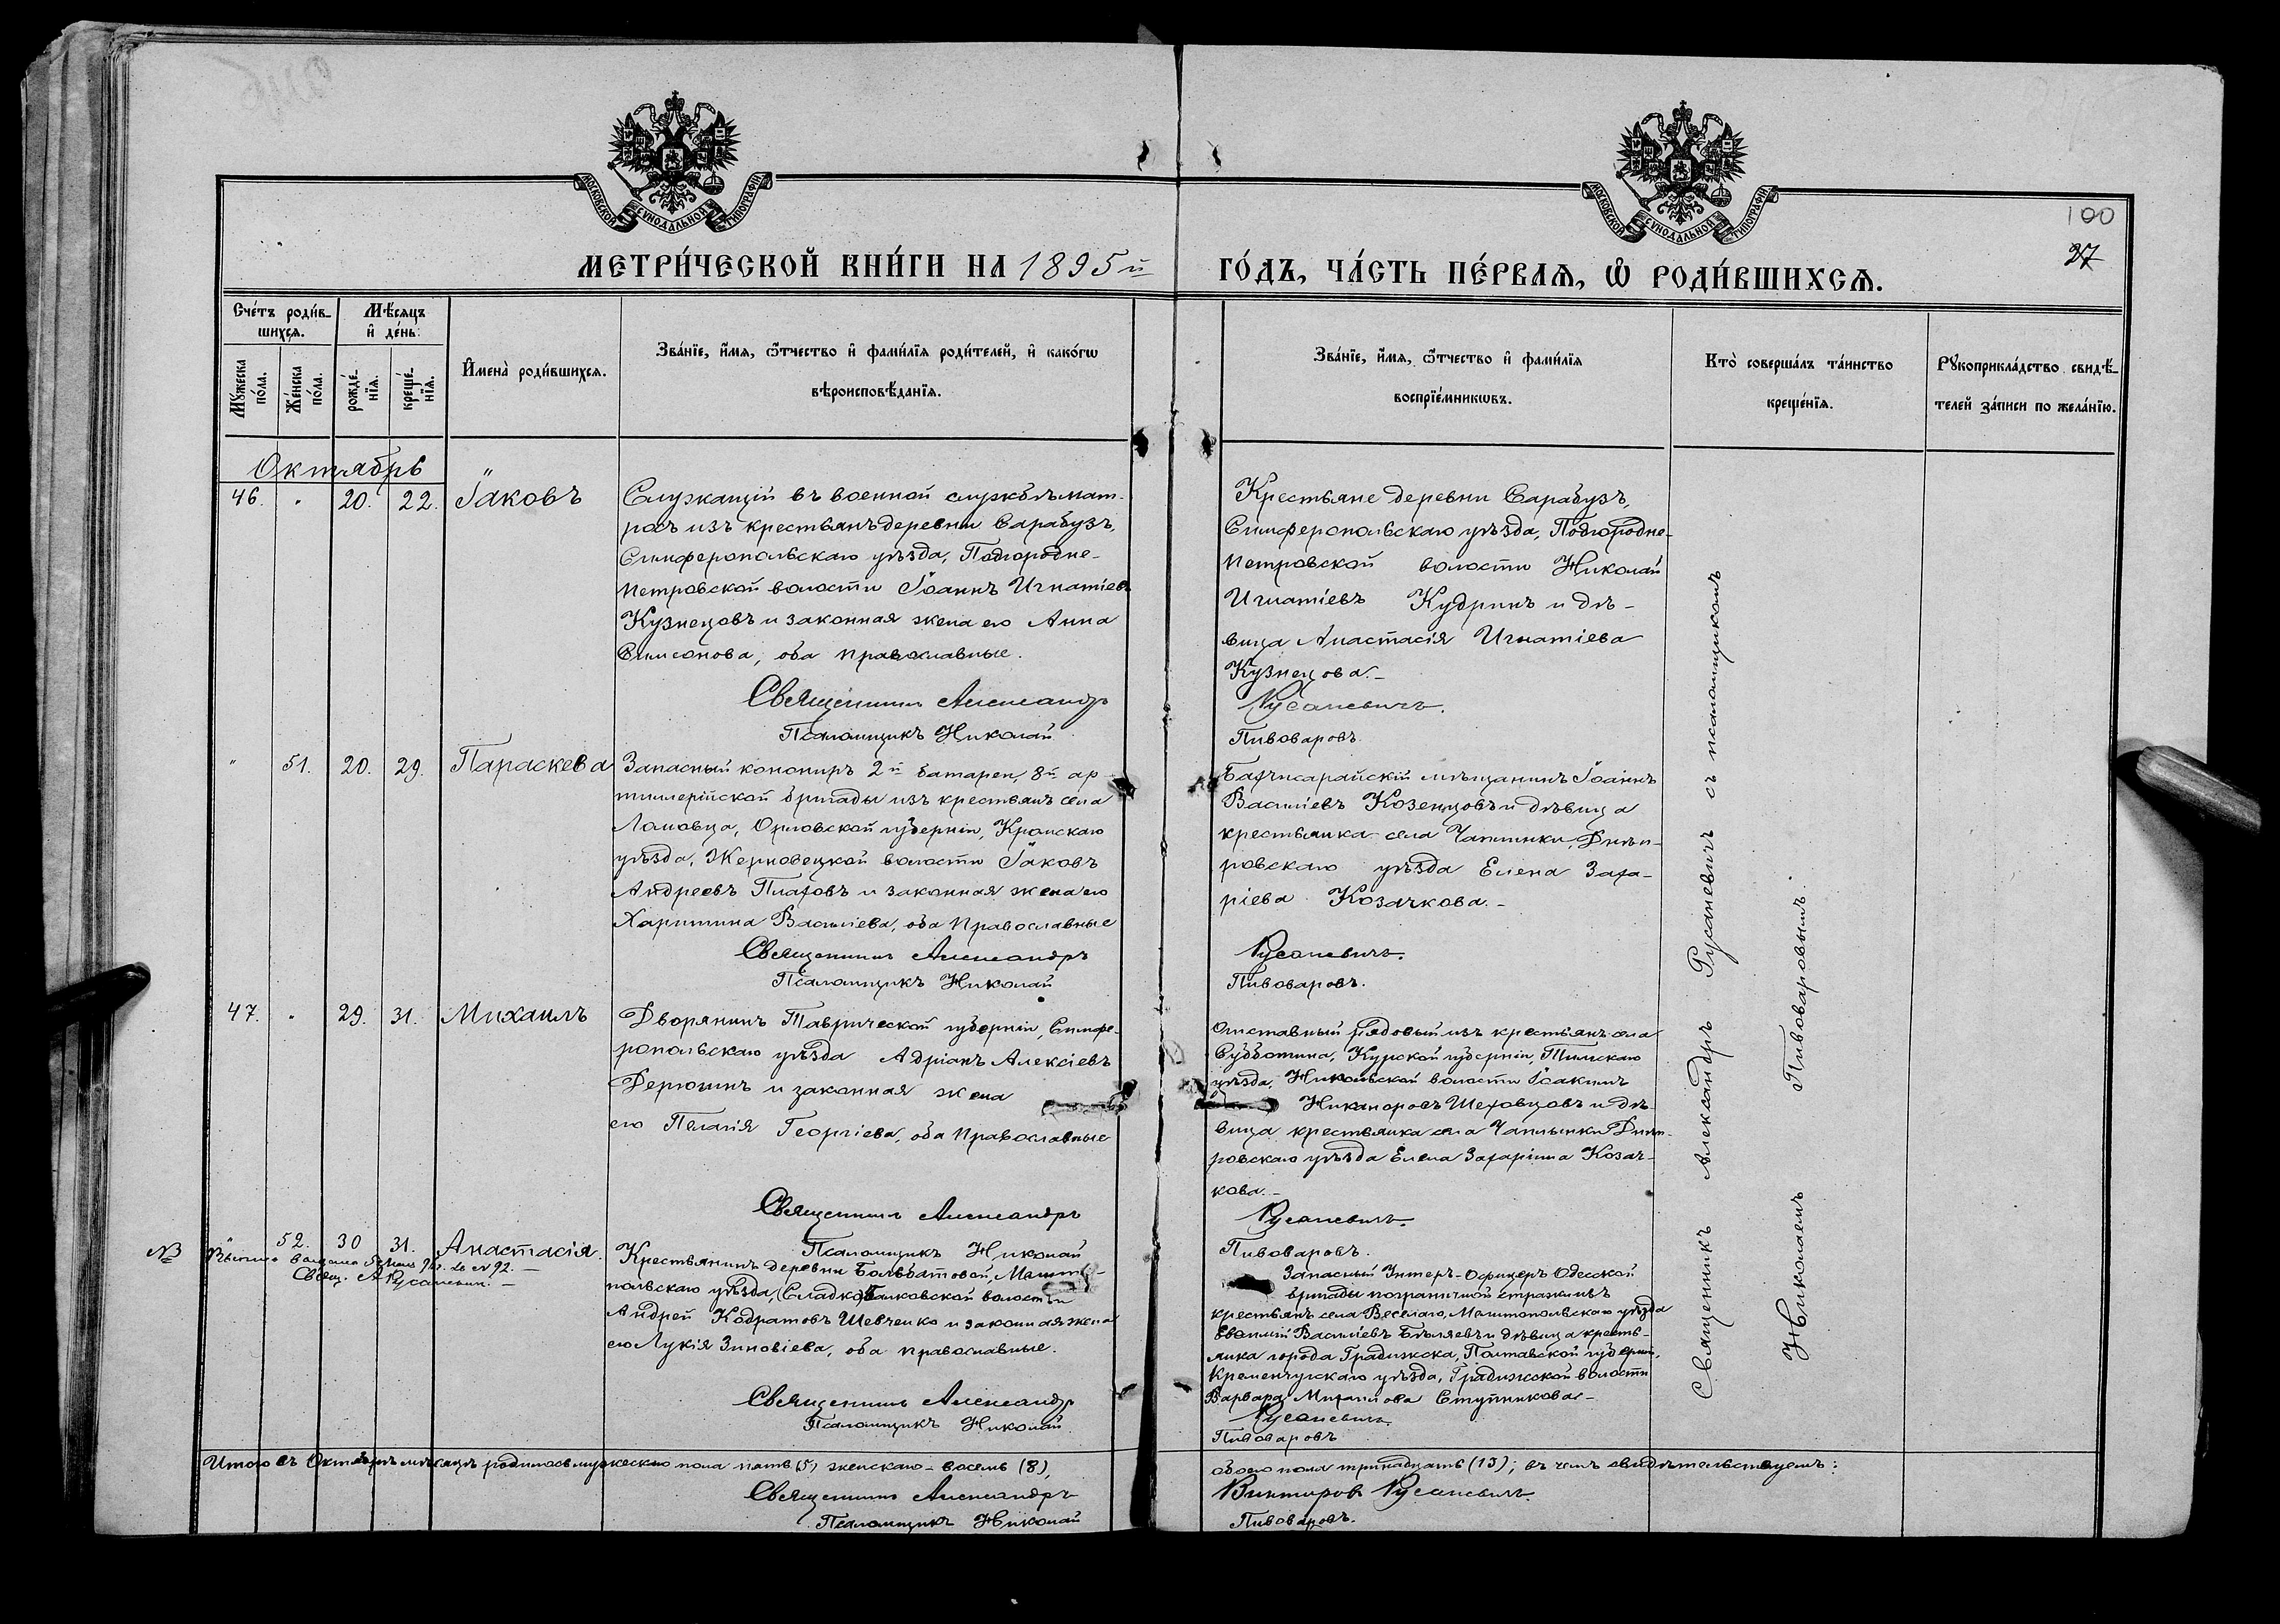 МОСКОВСКОЙ СУНОДАЛЬНОЙ ТИПОГРАФІИ
МОСКОВСКОЙ СУНОДАЛЬНОЙ ТИПОГРАФІИ
100
27
МЕТРИ́ЧЕСКОЙ КНИ́ГИ НА 1895й ГО́ДЪ, ЧА́СТЬ ПЕ́РВАЯ, Ѡ҆ РОДИ́ВШИХСЯ.
Сче́тъ роди́в-
шихся.
Мѣ́сяцъ
и҆ де́нь.
Мꙋжеска по́ла.
Же́нска по́ла.
рожде́-
нїя.
креще́-
нїя.
И҆мена̀ роди́вшихся.
Зва́нїе, и҆́мя, ѻ҆́тчество и҆ фами́лїя роди́телей, и҆ како́гѡ
вѣроисповѣ́данїя.
Зва́нїе, и҆́мя, ѻ҆́тчество и҆ фами́лїя
воспрїе́мникѡвъ.
Кто̀ соверша́лъ та́инство
креще́нїя.
Рꙋкоприкла́дство свидѣ́-
телей за́писи по жела́нїю.
Октябрь
46. " 20. 22. Іаковъ
Служащій въ военной службѣ мат-
росъ изъ крестьянъ деревни Сарабузъ,
Симферопольскаго уѣзда, Подгородне-
петровской волости Іоаннъ Игнатіевъ
Кузнецовъ и законная жена его Анна
Симеонова, оба православные.
Священникъ Александръ
Псаломщикъ Николай
Крестьяне деревни Сарабузъ,
Симферопольскаго уѣзда, Подгородне-
петровской волости Николай
Игнатіевъ Кудринъ и дѣ-
вица Анастасія Игнатіева
Кузнецова.-
Русаневичъ.
Пивоваровъ.
" 51. 20. 29. Параскева
Запасный канониръ 2й батареи, 8й ар-
тиллерійской бригады изъ крестьянъ села
Ломовца, Орловской губерніи, Кромскаго
уѣзда, Жерновецкой волости Іаковъ
Андреевъ Плаховъ и законная жена его
Харитина Василіева, оба православные
Священникъ Александръ
Псаломщикъ Николай
Бахчисарайскій мѣщанинъ Іоаннъ
Василіевъ Козенцовъ и дѣвица
крестьянка села Чаплинки, Днѣп-
ровскаго уѣзда Елена Заха-
ріева Козачкова.-
Русаневичъ.
Пивоваровъ.
47. " 29. 31. Михаилъ
Дворянинъ Таврической губерніи, Симфе-
ропольскаго уѣзда Адріанъ Алексіевъ
Дерюгинъ и законная жена
его Пелагія Георгіева, оба православные
Священникъ Александръ
Псаломщикъ Николай
Отставный рядовый изъ крестьянъ села
Субботина, Курской губерніи, Тимскаго
уѣзда, Никольской волости Іоакимъ
Никаноровъ Шеховцовъ и дѣ-
вица крестьянка села Чаплинки Днѣп-
ровскаго уѣзда Елена Захаріина Козач-
кова.-
Русаневичъ.
Пивоваровъ.
NB " 52. 30 31. Анастасія.
Свящ. А Русаневичъ.-
Крестьянинъ деревни Мелито-
польскаго уѣзда, (Сладко)балковской волости
Андрей Кодратовъ Шевченко и законная жена
его Лукія Зиновіева, оба православные.
Священникъ Александръ
Псаломщикъ Николай
Запасный Унтеръ-Офицеръ Одесской
бригады пограничной стражи изъ
крестьянъ села Веселаго, Мелитопольскаго уѣзда
Евѳимій Василіевъ Бѣляевъ и дѣвица кресть-
янка города Градижска, Полтавской губерніи,
Кременчугскаго уѣзда, Градижской волости
Варвара Михаилова Ступникова-
Русаневичъ.
Пивоваровъ
Итого въ Октябрѣ мѣсяцѣ родилось мужескаго пола пять (5) женскаго - восемь (8), обоего пола тринадцать (13); въ чемъ свидѣтельствуемъ:
Священникъ Александръ Викторовъ Русаневичъ.
Псаломщикъ Николай Пивоваровъ.
Священникъ Александръ Русаневичъ съ псаломщикомъ
Николаемъ Пивоваровымъ.